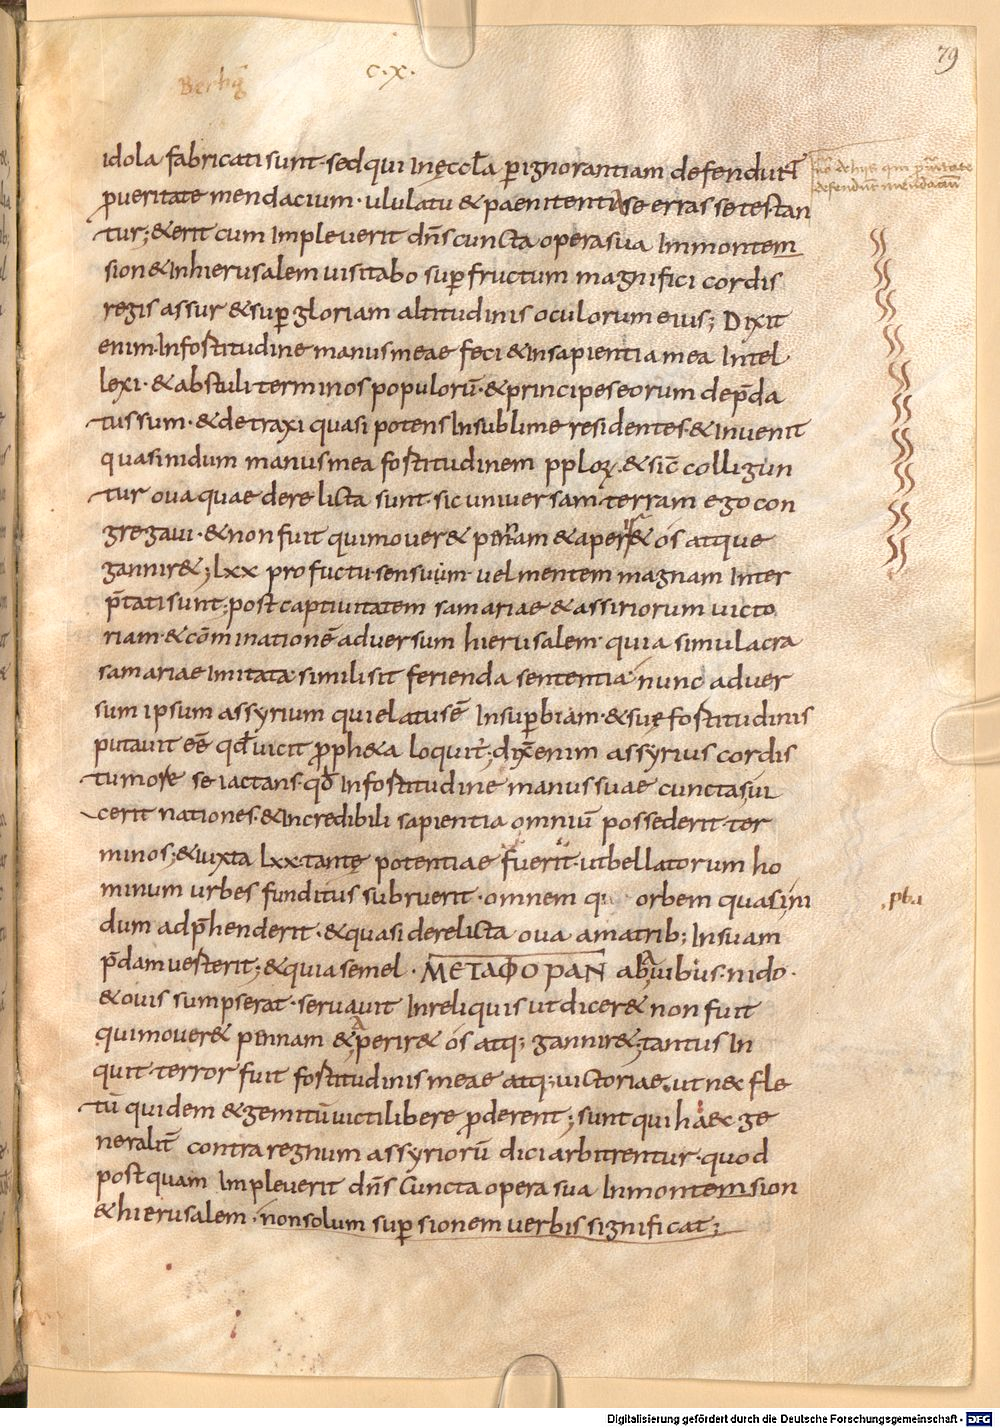 79
c.x.
idola fabricati sunt· sed qui in ęccl̄a p̱ ignorantiam defendūt
ꝓ ueritate mendacium· ululatu & paenitentia se errasse testan
tur; & erit cum impleverit dn̄s cuncta opera sua In montem
sion & In hierusalem visitabo sup̱ fructum magnifici cordis
regis assur & sup̱ gloriam altitudinis oculorum eius; Dixit
enim· In fortitudine manus meae feci & In sapientia mea Intel
lexi· & abstuli terminos populorū· & principes eorum dep̄da
tus sum· & detraxi quasi potens In sublime residentes· & Invenit
quasi nidum manus mea fortitudinem pploꝝ· & sic̄ colligun
tur ova quae derelicta sunt· sic universam terram ego con
gregavi· & non fuit qui mover& pennam & aperir& ós atque
gannir&; lxx pro fuctu sensuum vel mentem magnam Inter
p̄tati sunt; post captivitatem samariae & assiriorum victo
riam· & cōminationē adversum hierusalem· quia simulacra
samariae Imitata· similis sit ferienda sententia· nunc adver
sum ipsum assyrium qui elatus ē In sup̱biam· & suę fortitudinis
putavit eē qđ vicit ꝓph&a loquit̄; dix̄ enim assyrius cordis
tumore se iactans· qđ In fortitudine manus suae cunctas vi
cerit nationes· & Incredibili sapientia omniū possederit ter
minos; & iuxta lxx· tantę potentiae fuerit· ut bellatorum ho
minum urbes funditus subruerit· omnem q orbem quasi ni
dum adp̄henderit· & quasi derelicta ova a matrib; In suam
p̄dam verterit; & quia semel· ΜΕΤΑΦΟΡΑΝ ab avibus· nido·
& ovis sumpserat· servavit In reliquis ut dicer& non fuit
qui mover& pennam & aperir& ós atq; gannir&; tantus In
quit terror fuit fortitudinis meae atq; victoriae· ut nec fle
tū quidem & gemitū victi libere ꝓderent; sunt qui haec ge
neralit̄ contra regnum assyriorū dici arbitrentur· quod
postquam Impleverit dn̄s Cuncta opera sua In montem sion
& hierusalem· non solum sup̱ sionem verbis significat;
Digitalisierung gefördert durch die Deutsche Forschungsgemeinschaft - DFG